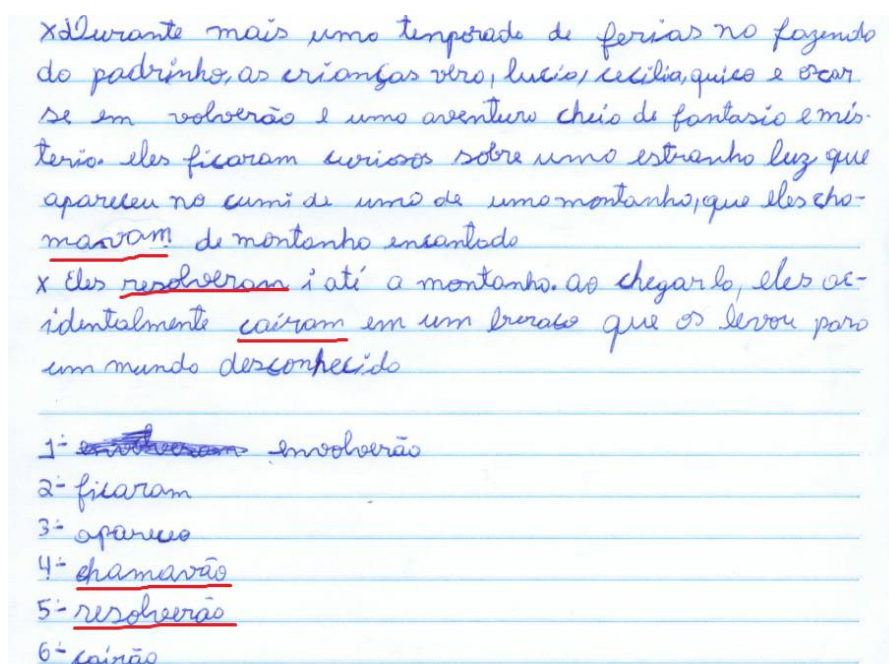 x Durante mais uma temporada de ferias na fazenda
do padrinho, as crianças vera, lucia, cecilia, quico e oscar
se em volverão e uma aventura cheia de fantasia e mis-
terio. eles ficaram curiosos sobre uma estranha luz que
apareceu no cumi de uma de uma montanha, que eles cha-
mavam de montanha encantada
x Eles resolveram i até a montanha. ao chegar la, eles ac-
identalmente caíram em um buraco que os levou para
um mundo desconhecido
1- envolverão
2- ficaram
3- apareceo
4- chamavão
5- resolverão
6- cairão